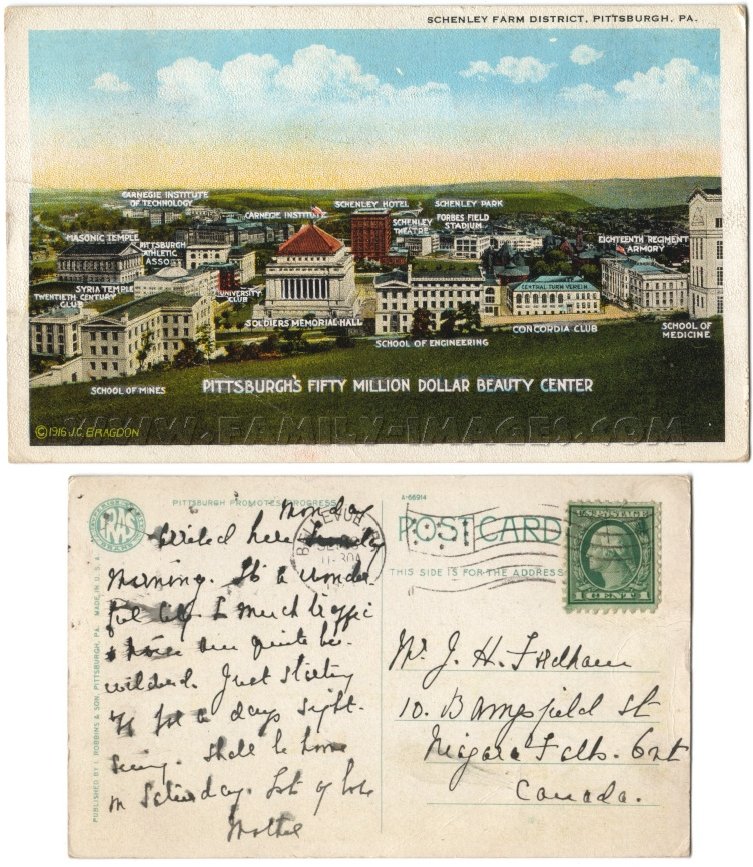 SCHENLEY FARM DISTRICT, PITTSBURGH, PA.
CARNEGIE INSTITUTE
OF TECHNOLOGY
SCHENLEY HOTEL
SCHENLEY PARK
CARNEGIE INSTITUTE
SCHENLEY
THEATRE
FORBES FIELD
STADIUM
MASONIC TEMPLE
PITTSBURGH
ATHLETIC
ASSO
EIGHTEENTH REGIMENT
ARMORY
SYRIA TEMPLE
TWENTIETH CENTURY
CLUB
UNIVERSITY
CLUB
CENTRAL TURN VEREIN
SOLDIERS MEMORIAL HALL
CONCORDIA CLUB
SCHOOL OF
MEDICINE
SCHOOL OF ENGINEERING
SCHOOL OF MINES
PITTSBURGH'S FIFTY MILLION DOLLAR BEAUTY CENTER
©1916 J.C. BRAGDON
WWW.FAMILY-IMAGES.COM
PITTSBURGH PROMOTES PROGRESS
A-66914
Monday
Arrived here
Morning. It a wonder
ful city & much traffic
quite be-
wildered. Just starting
for a days sight-
seeing. Shall be home
on Saturday. Lots of love
Mother
BELLEVUE, PA
11-30A
POST CARD
THIS SIDE IS FOR THE ADDRESS
U.S. POSTAGE
1 CENT 1
Mr. J. H.
10. Bampfield St
Niagara Falls. Ont
Canada.
PUBLISHED BY I. ROBBINS & SON, PITTSBURGH, PA. MADE IN U.S.A.
IRAS